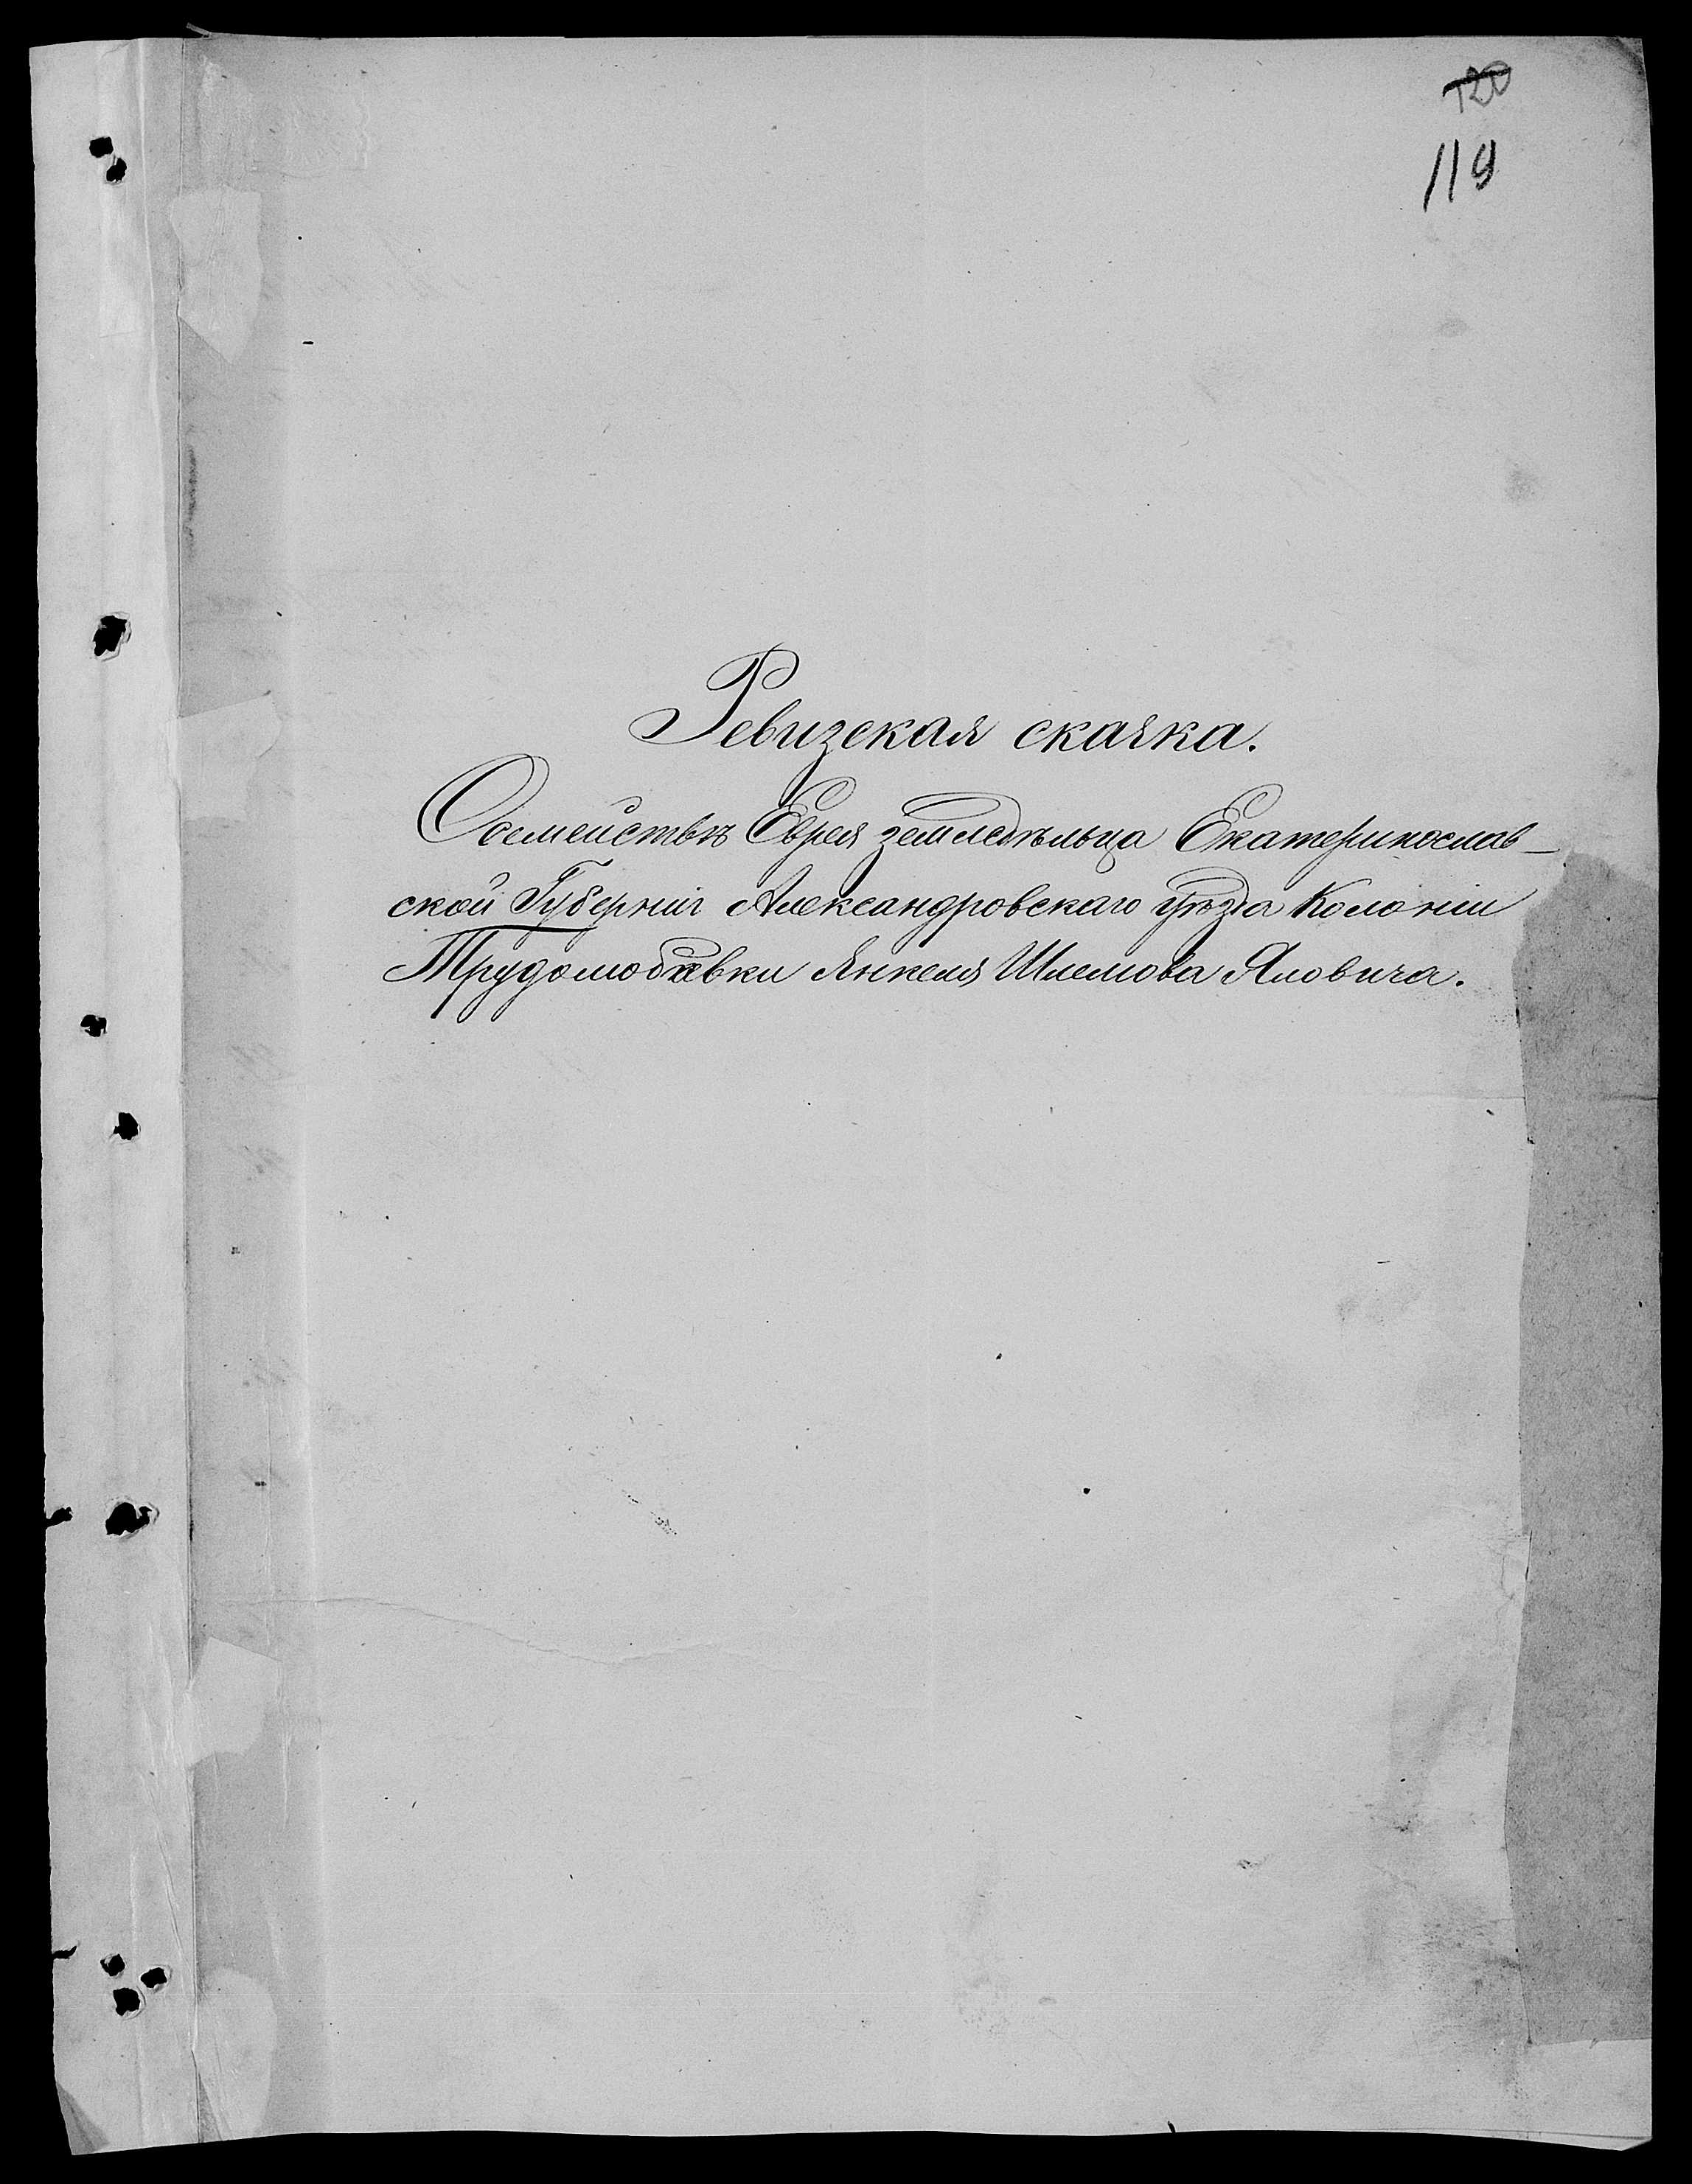 120
119
Ревизская скаска.
О семействѣ Еврея земледѣльца Екатеринослав-
ской Губерніи Александровскаго уѣзда Колоніи
Трудолюбовки Янкеля Шлемова Яловича.